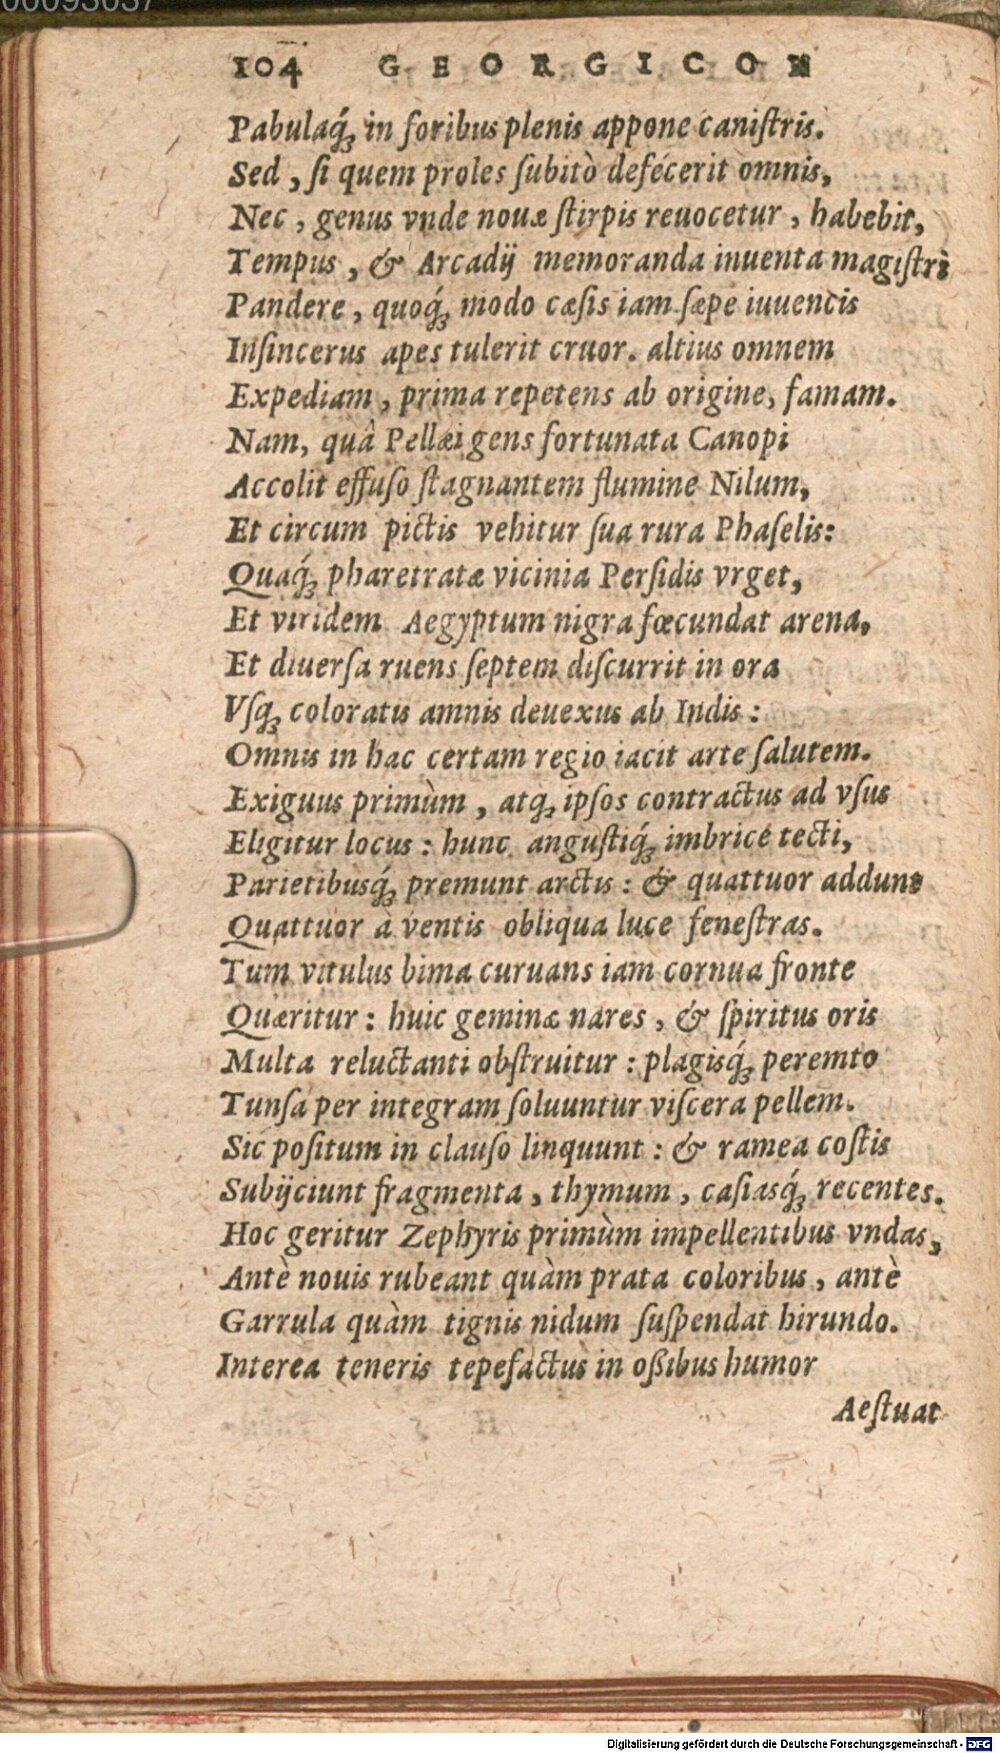 104 GEORGICON
Pabulaq́ꝫ in foribus plenis appone caniſtris.
Sed, ſi quem proles ſubitò defécerit omnis,
Nec, genus vnde nouæ ſtirpis reuocetur, habebit,
Tempus, & Arcadij memoranda inuenta magiſtri
Pandere, quoq́ꝫ modo cæſis iam ſæpe iuuencis
Inſincerus apes tulerit cruor. altius omnem
Expediam, prima repetens ab origine, famam.
Nam, quâ Pellæi gens fortunata Canopi
Accolit effuſo ſtagnantem flumine Nilum,
Et circum pictis vehitur ſua rura Phaſelis:
Quaq́ꝫ pharetratæ vicinia Perſidis vrget,
Et viridem Aegyptum nigra fœcundat arena,
Et diuerſa ruens ſeptem diſcurrit in ora
Vſqꝫ coloratis amnis deuexus ab Indis:
Omnis in hac certam regio iacit arte ſalutem.
Exiguus primùm, atqꝫ ipſos contractus ad vſus
Eligitur locus: hunc anguſtiq́ꝫ imbrice tecti,
Parietibusq́ꝫ premunt arctis: & quattuor addunt
Quattuor à ventis obliqua luce feneſtras.
Tum vitulus bima curuans iam cornua fronte
Quæritur: huic geminæ nares, & ſpiritus oris
Multa reluctanti obſtruitur: plagisq́ꝫ peremto
Tunſa per integram ſoluuntur viſcera pellem.
Sic poſitum in clauſo linquunt: & ramea coſtis
Subijciunt fragmenta, thymum, caſiasq́ꝫ recentes.
Hoc geritur Zephyris primùm impellentibus vndas,
Antè nouis rubeant quàm prata coloribus, antè
Garrula quàm tignis nidum ſuſpendat hirundo.
Interea teneris tepefactus in oßibus humor
Aeſtuat
Digitalisierung gefördert durch die Deutsche Forschungsgemeinschaft - DFG